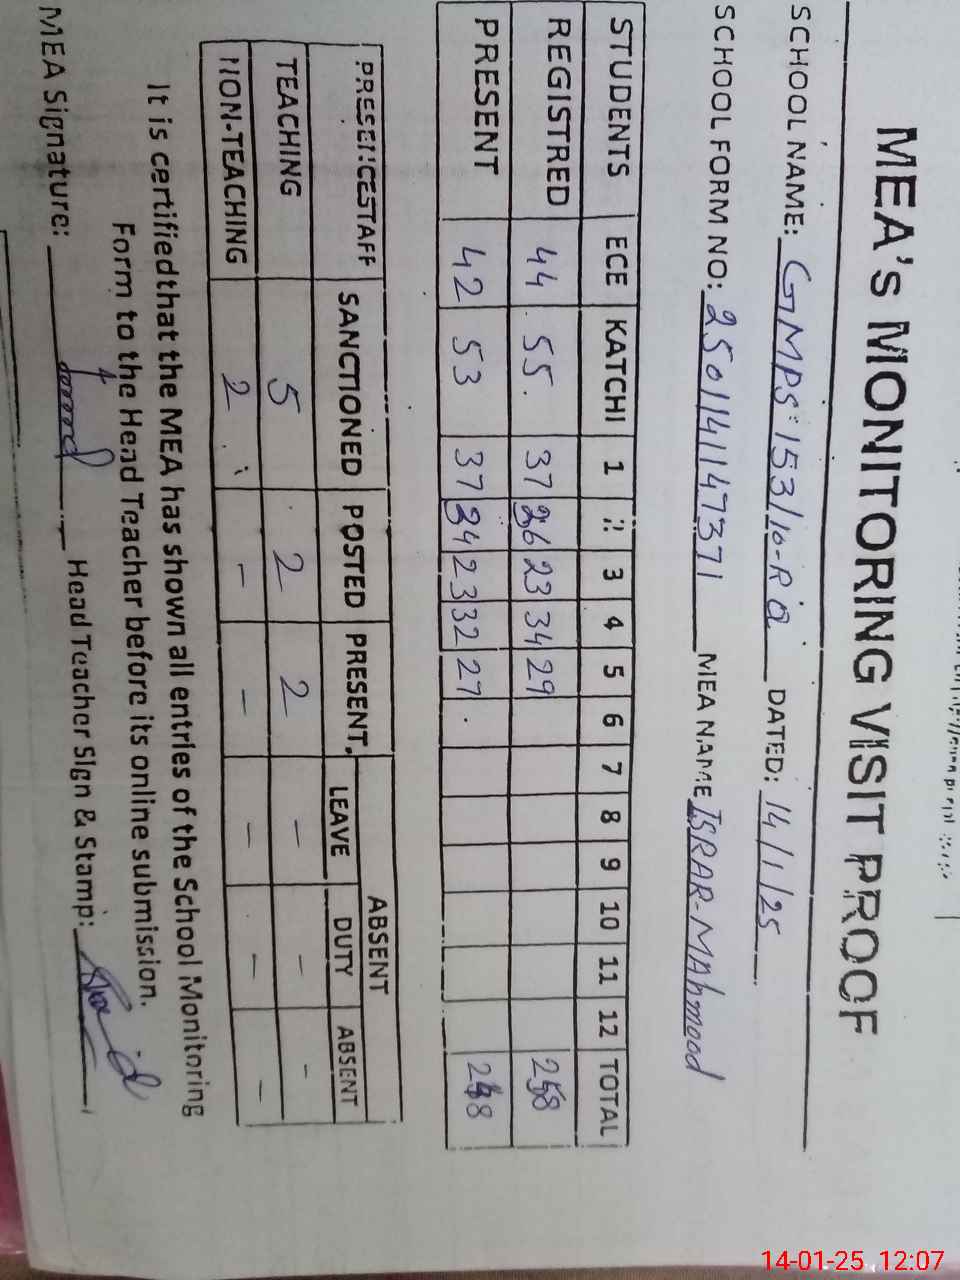 MEA's MONITORING VISIT PROOF
SCHOOL NAME: GMPS 153/10-R DATED: 14/1/25
SCHOOL FORM NO: 2501141147371 MEA NAME ISRAR-MAhmood
STUDENTS ECE KATCHI 1 2 3 4 5 6 7 8 9 10 11 12 TOTAL
REGISTRED 44 55 37 26 23 34 29 258
PRESENT 42 53 37 24 23 32 27 248
PRESENCESTAFF SANCTIONED POSTED PRESENT ABSENT
LEAVE DUTY ABSENT
TEACHING 5 2 2 - - -
NON-TEACHING 2 - - - - -
It is certifiedthat the MEA has shown all entries of the School Monitoring
Form to the Head Teacher before its online submission.
MEA Signature: Head Teacher Sign & Stamp:
14-01-25 12:07